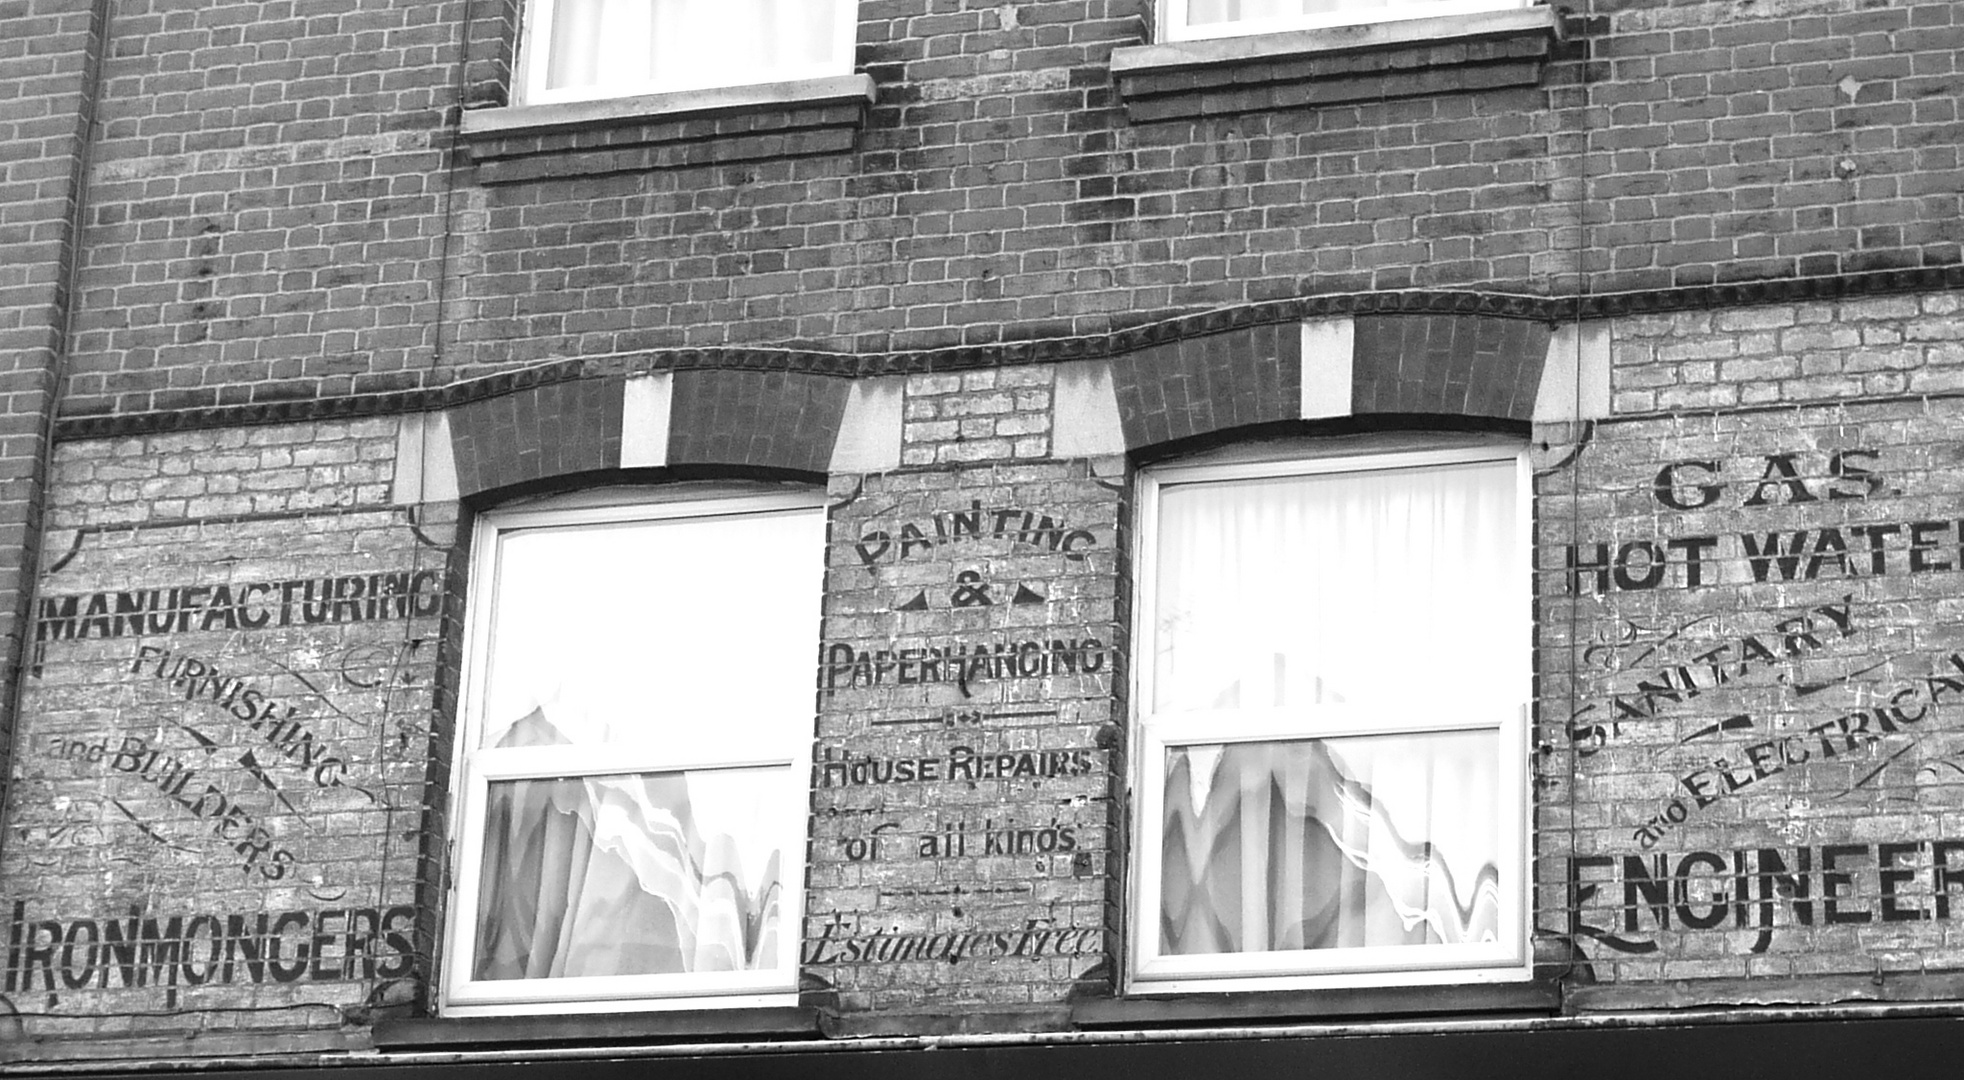 MANUFACTURING
FURNISHING
and BUILDERS
IRONMONGERS
PAINTING
&
PAPERHANGING
HOUSE REPAIRS
of all kinds.
Estimates Free.
GAS.
HOT WATER
& SANITARY
and ELECTRICAL
ENGINEER